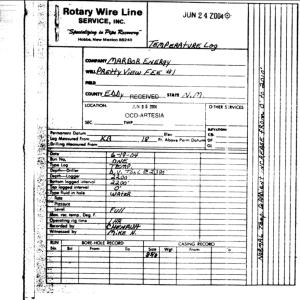 Rotary Wire Line
SERVICE, INC.
"Specializing in Pipe Recovery"
Hobbs, New Mexico 88240
JUN 24 2004
TEMPERATURE LOG
COMPANY MARBOB ENERGY
WELL PRETTY VIEW FEE #1
FIELD
COUNTY EDDY RECEIVED STATE N.M.
LOCATION: OTHER SERVICES
OCD-ARTESIA
SEC. TWP.
ELEVATION:
Permanent Datum Elev.
Log Measured From KB 18 Ft. Above Perm Datum
Drilling Measured From
Date 6-19-04
Run No. ONE
Type Log TEMP.
Depth—Driller
Depth—Logger 2200
Bottom logged interval 2200
Top logged interval 0'
Type fluid in hole WATER
Level FULL
Max. rec. temp., Deg. F.
Operating rig time 1 HR
Recorded by
Witnessed by MIKE N.
RUN BORE-HOLE RECORD CASING RECORD
No. Bit From To Size Wgt From To